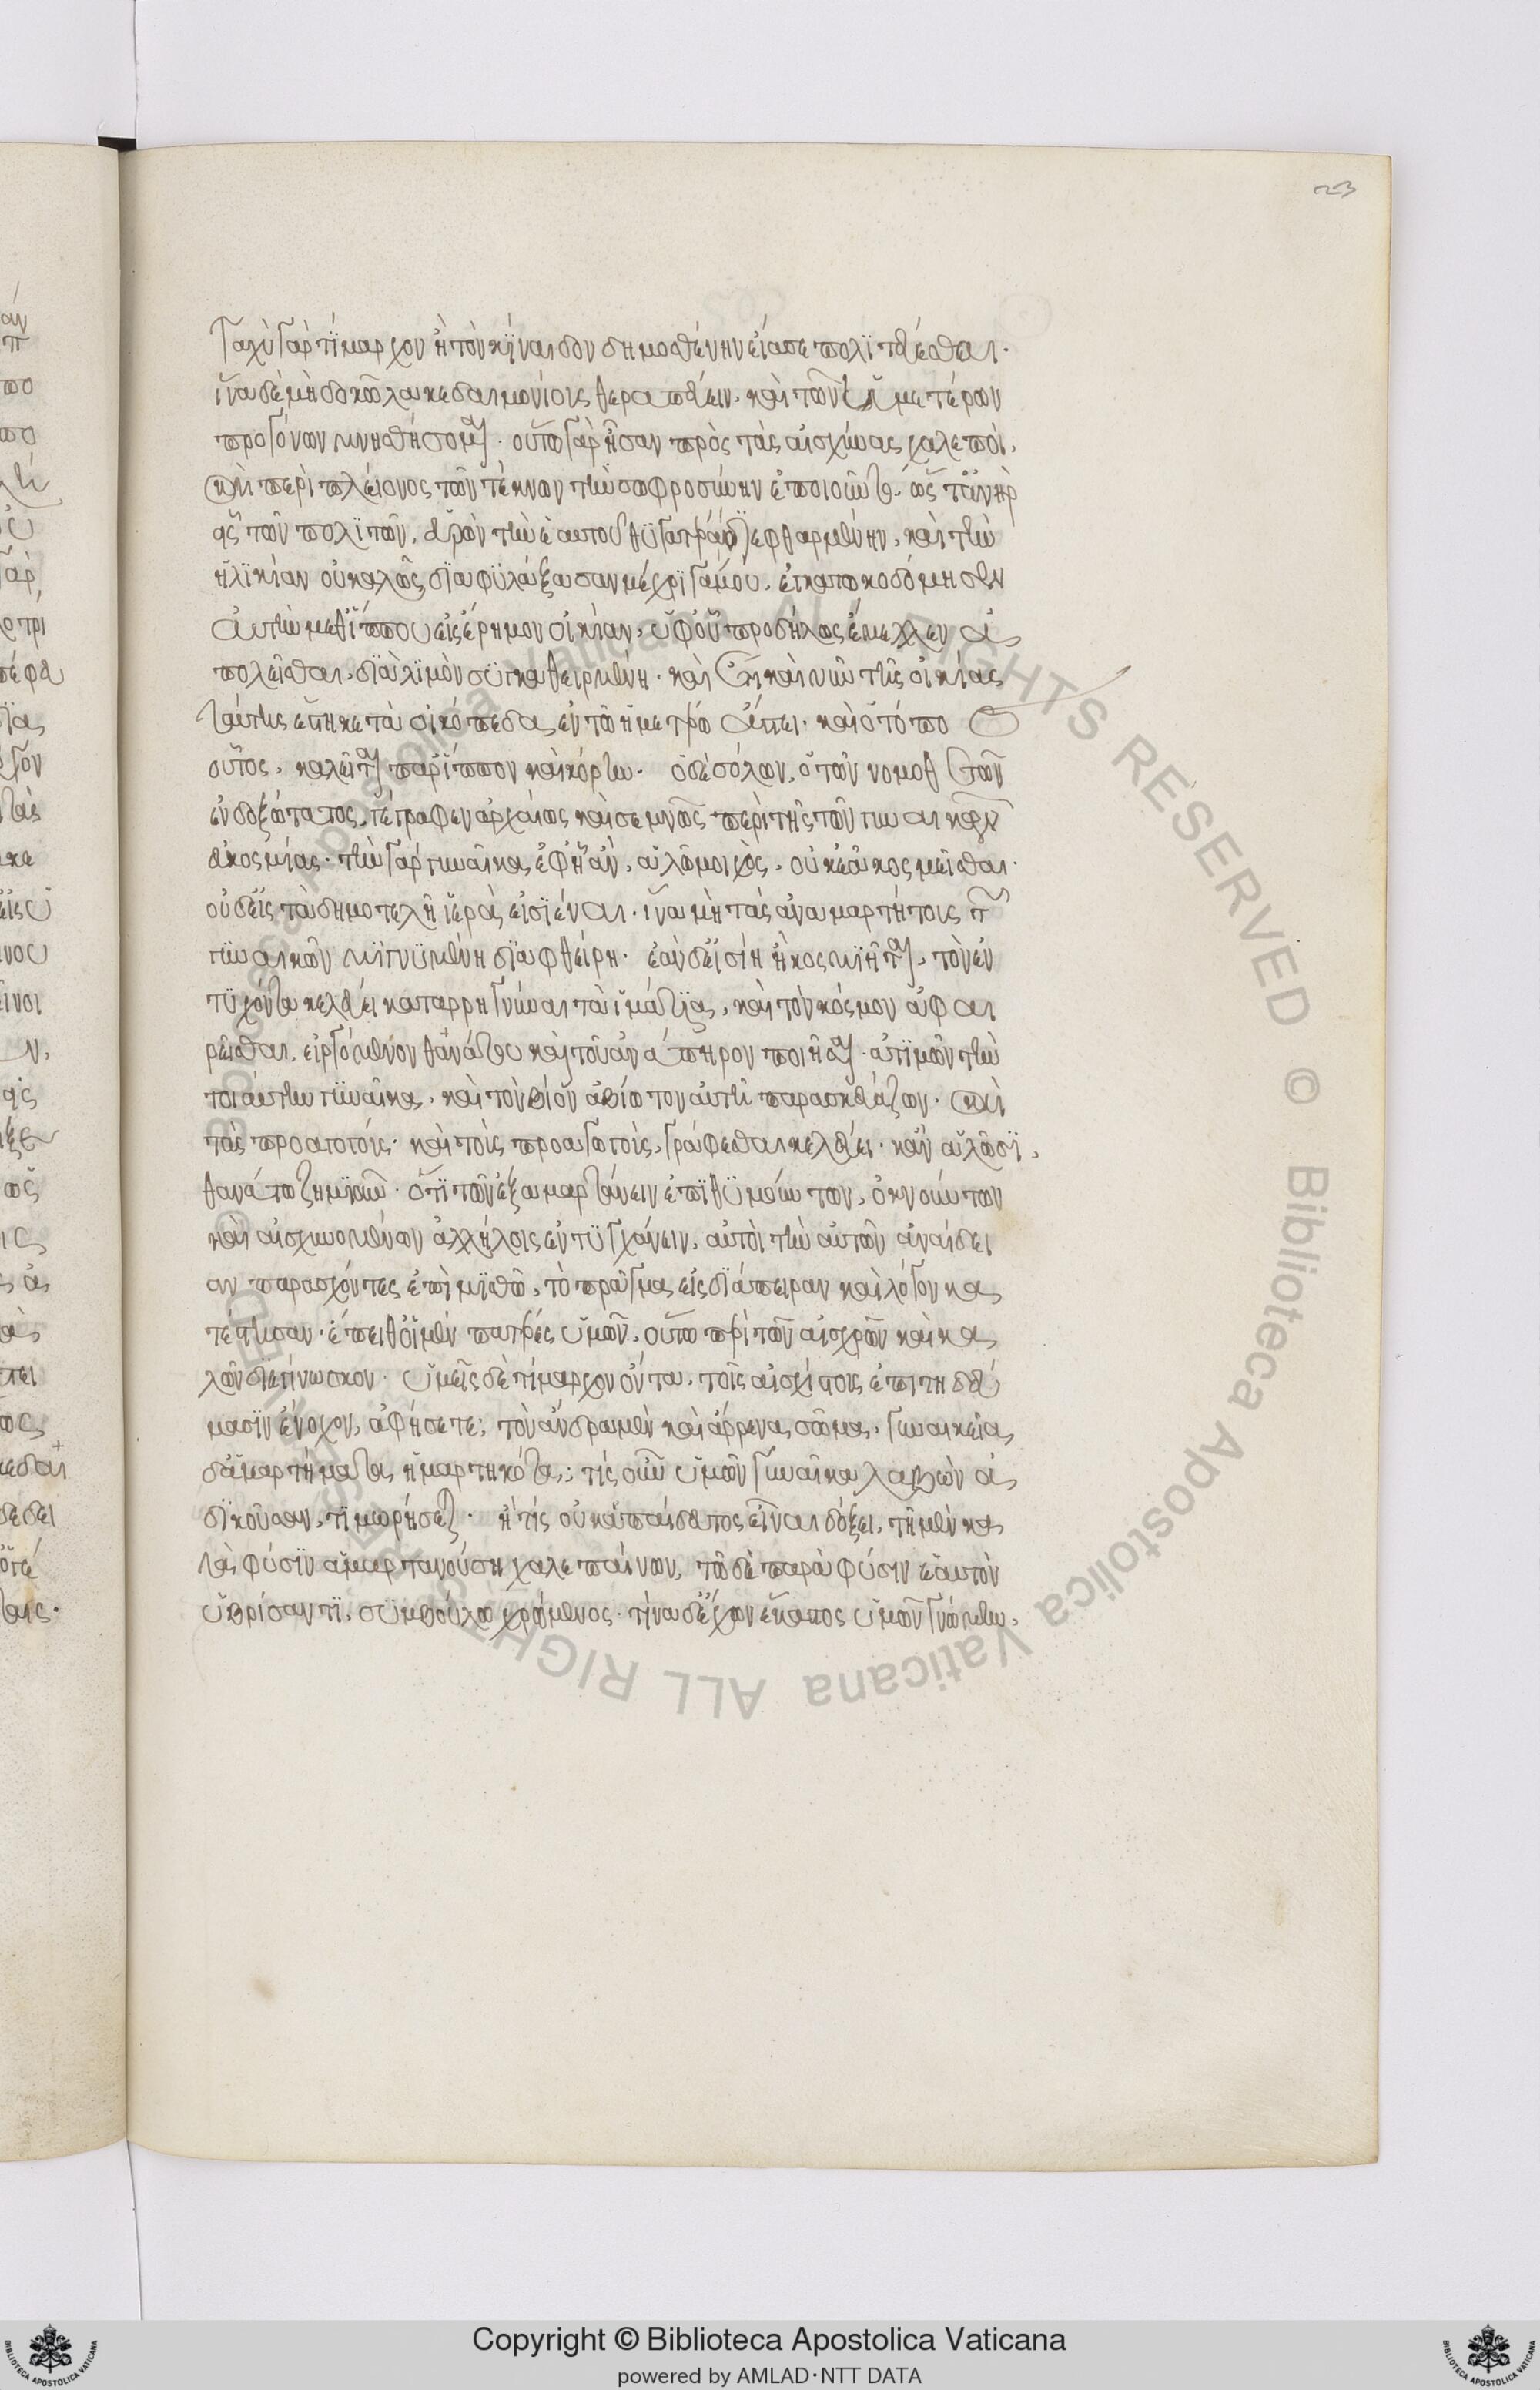 23
Ταχὺ γὰρ τίμαρχον ἢ τὸν κίναιδον δημοσθένην εἴασε πολιτεύεσθαι·
ἵνα δὲ μὴ δοκῶ λακεδαιμονίους θεραπεύειν, καὶ τῶν ἡμετέρων
προγόνων μνησθήσομαι· οὕτω γὰρ ἦσαν πρὸς τὰς αἰσχύνας χαλεποὶ,
καὶ περὶ πλείονος τῶν τέκνων τὴν σωφροσύνην ἐποιοῦντο, ὥστ' ἀνὴρ
εἷς τῶν πολιτῶν, εὑρὼν τὴν ἑαυτοῦ θυγατέρα διεφθαρμένην, καὶ τὴν
ἡλικίαν οὐ καλῶς διαφυλάξασαν μέχρι γάμου, ἐγκατωκοδόμησεν
αὐτὴν μεθ' ἵππου εἰς ἔρημον οἰκίαν, ὑφ' οὗ προδήλως ἔμελλεν ἀ
πολεῖσθαι, διὰ λιμὸν συγκαθειργμένη· καὶ ἔτι καὶ νῦν τῆς οἰκίας
ταύτης ἕστηκε τὰ οἰκόπεδα ἐν τῷ ἡμετέρῳ ἄστει· καὶ ὁ τόπος
οὗτος, καλεῖται παρ' ἵππον καὶ κόρην. ὁ δὲ σόλων, ὁ τῶν νομοθετῶν
ἐνδοξότατος, γέγραφεν ἀρχαίως καὶ σεμνῶς περὶ τῆς τῶν γυναικῶν
εὐκοσμίας· τὴν γὰρ γυναῖκα, ἐφ' ᾗ ἂν, ἁλῷ μοιχὸς, οὐκ ἐᾷ κοσμεῖσθαι·
οὐδ' εἰς τὰ δημοτελῆ ἱερὰ εἰσιέναι· ἵνα μὴ τὰς ἀναμαρτήτους τῶν
γυναικῶν μιγνυμένη διαφθείρῃ· ἐὰν δ' εἰσίῃ ἢ κοσμῆται, τὸν ἐν
τυχόντα κελεύει καταρρηγνύναι τὰ ἱμάτια, καὶ τὸν κόσμον ἀφαι
ρεῖσθαι, εἰργόμενον θανάτου καὶ τοῦ ἀνάπηρον ποιῆσαι· ἀτιμῶν τὴν
τοιαύτην γυναῖκα, καὶ τὸν βίον ἀβίωτον αὐτῇ παρασκευάζων· καὶ
τὰς προαγωγούς· καὶ τοὺς προαγωγοὺς, γράφεσθαι κελεύει· κἂν ἁλῶσι,
θανάτῳ ζημιοῦν· ὅτι τῶν ἐξαμαρτάνειν ἐπιθυμούντων, ὀκνούντων
καὶ αἰσχυνομένων ἀλλήλοις ἐντυγχάνειν, αὐτοὶ τὴν αὐτῶν ἀναίδει
αν παρασχόντες ἐπὶ μισθῷ, τὸ πρᾶγμα εἰς διάπειραν καὶ λόγον κα
τέστησαν· ἔπειθ' οἱ μὲν πατέρες ὑμῶν, οὕτω περὶ τῶν αἰσχρῶν καὶ κα
λῶν διεγίνωσκον· ὑμεῖς δὲ τίμαρχον ὄντα, τοῖς αἰσχίστοις ἐπιτηδεύ
μασιν ἔνοχον, ἀφήσετε; τὸν ἄνδρα μὲν καὶ ἄρρενα σῶμα, γυναικεῖα
δ' ἁμαρτήματα ἡμαρτηκότα; τίς οὖν ὑμῶν γυναῖκα λαβὼν ἀ
δικοῦσαν, τιμωρήσεται· ἢ τίς οὐκ ἀπαίδευτος εἶναι δόξει, τῇ μὲν κα
τὰ φύσιν ἁμαρτανούσῃ χαλεπαίνων, τῷ δὲ παρὰ φύσιν ἑαυτὸν
ὑβρίσαντι, συμβούλῳ χρώμενος· τίνα δ' ἔχων ἕκαστος ὑμῶν γνώμην,
Copyright © Biblioteca Apostolica Vaticana
powered by AMLAD·NTT DATA